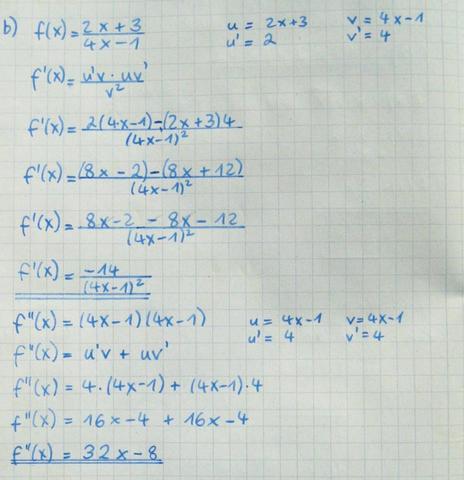 b) f(x) = (2x+3)/(4x-1) u = 2x+3 v = 4x-1
u' = 2 v' = 4
f'(x) = (u'v · uv')/v²
f'(x) = (2(4x-1)-(2x+3)4)/(4x-1)²
f'(x) = ((8x-2)-(8x+12))/(4x-1)²
f'(x) = (8x-2 - 8x-12)/(4x-1)²
f'(x) = -14/(4x-1)²
f''(x) = (4x-1)(4x-1) u = 4x-1 v=4x-1
u' = 4 v' = 4
f''(x) = u'v + uv'
f''(x) = 4·(4x-1) + (4x-1)·4
f''(x) = 16x-4 + 16x-4
f''(x) = 32x-8